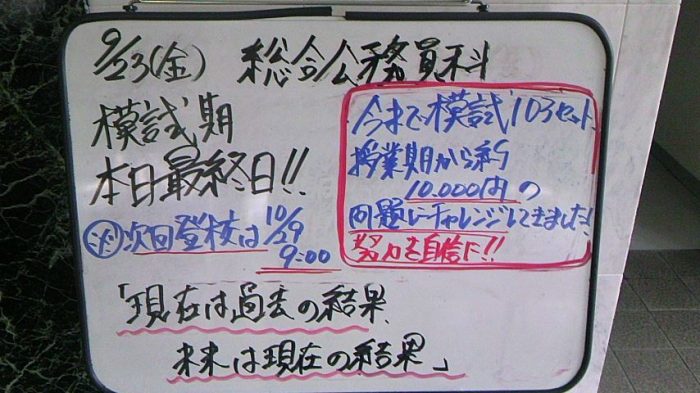 9/23(金) 総合公務員科
模試期
本日最終日!!
次回登校は10/29
9:00
今まで模試103セット、
授業期から約
10.000内の
問題にチャレンジしてきました!
努力を自信に!!
「現在は過去の結果、
未来は現在の結果」